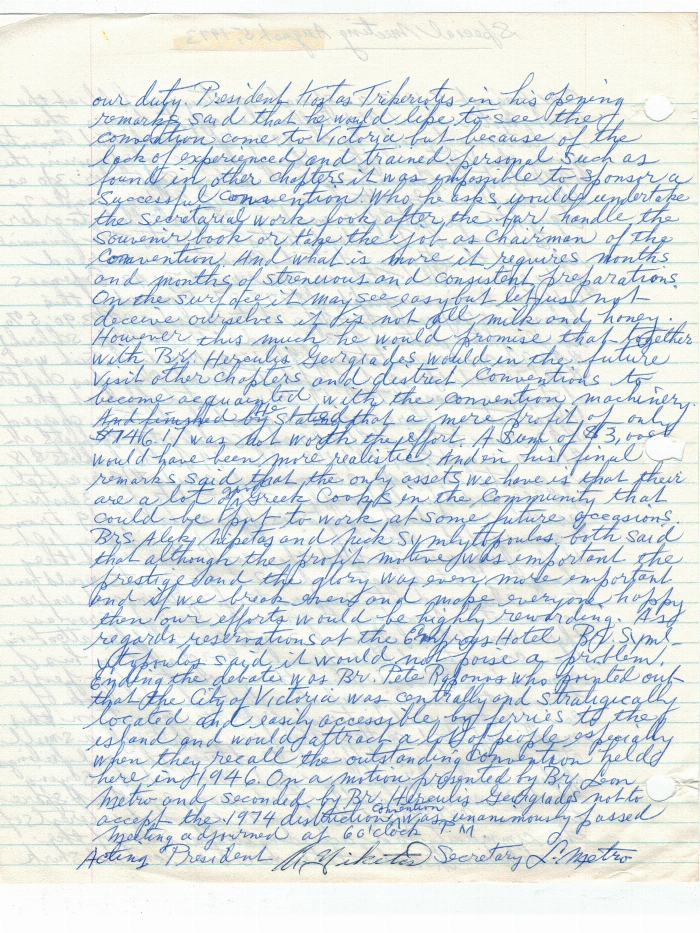 our duty. President Kostas Trikeriotis in his opening
remarks said that he would like to see the
convention come to Victoria but because of the
lack of experienced and trained personal such as
found in other chapters it was impossible to sponsor a
successful convention. Who, he asks would undertake
the secretarial work look after the bar handle the
souvenir book or take the job as Chairman of the
Convention. And what is more it requires months
and months of strenuous and consistent preparations.
On the surface it may see easy but let us not
deceive ourselves it is not all milk and honey.
However this much he would promise that together
with Br. Herculis Georgiades would in the future
Visit other chapters and district Conventions to
become acquainted with the convention machinery.
And finished by stated that a mere profit of only
$746.11 was not worth the effort. A sum of $3,000
would have been more realistic. And in his final
remarks said that the only assets we have is that their
are a lot of good Greek Cooks in the Community that
could be put to work at some future occasions.
Brs. Aleky Nipetas and Nick Symlytopoulos both said
that although the profit motive was important the
prestige and the glory was even more important
and if we break even and make everyone happy
then our efforts would be highly rewarding. As
regards reservations at the Empress Hotel Br. Syml-
ytopoulos said it would not poise a problem.
Ending the debate was Br. Pete who pointed out
that the City of Victoria was centrally and strategically
located and easily accessible by ferries to the
island and would attract a lot of people especially
when they recall the outstanding Convention held
here in 1946. On a motion presented by Br. Leon
Metro and seconded by Br. Herculis Georgiades not to
accept the 1974 district Convention was unanimously passed
Meeting adjourned at 6 o'clock P.M.
Acting President Secretary L. Metro
Special Meeting August 5, 1973